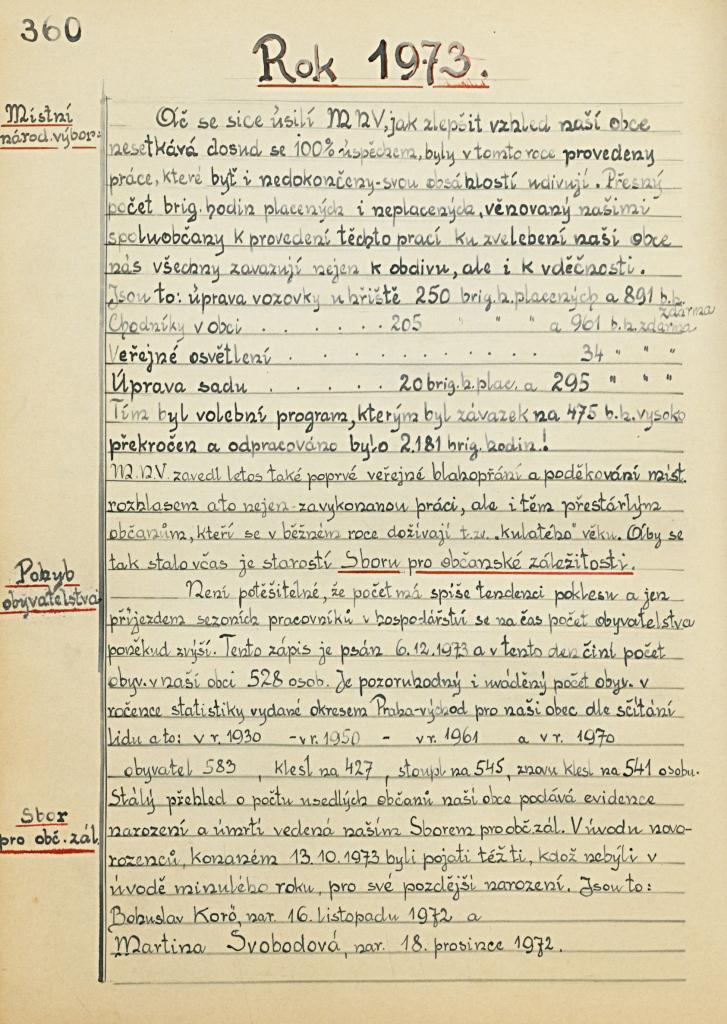 360
Rok 1973.
Místní
národ.výbor:
Ač se sice úsilí M N V, jak zlepšit vzhled naší obce
nesetkává dosud se 100% úspěchem, byly v tomto roce provedeny
práce, které byť i nedokončeny-svou obsáhlostí udivují. Přesný
počet brig. hodin placených i neplacených, věnovaný našimi
spoluobčany k provedení těchto prací ku zvelebení naší obce
nás všechny zavazují nejen k obdivu, ale i k vděčnosti.
Jsou to: úprava vozovky u hřiště 250 brig.h.placených a 891 b.h.
zdarma
Chodníky v obci . . . . . . 205 " " " a 961 b.h. zdarma
Veřejné osvětlení . . . . . . . . . . 34 " " "
Úprava sadu . . . . . 20 brig.h.plac. a 295 " " "
Tím byl volební program, kterým byl závazek na 475 b.h. vysoko
překročen a odpracováno bylo 2.181 brig.hodin!
M.N.V. zavedl letos také poprvé veřejné blahopřání a poděkování míst.
rozhlasem a to nejen-za vykonanou práci, ale i těm přestárlým
občanům, kteří se v běžném roce dožívají t.zv. „kulatého" věku. Aby se
tak stalo včas je starostí Sboru pro občanské záležitosti.
Pohyb
obyvatelstva
Není potěšitelné, že počet má spíše tendenci poklesu a jen
příjezdem sezoních pracovníků v hospodářství se na čas počet obyvatelstva
poněkud zvýší. Tento zápis je psán 6.12.1973 a v tento den činí počet
obyv. v naší obci 528 osob. Je pozoruhodný i uváděný počet obyv. v
ročence statistiky vydané okresem Praha-východ pro naši obec dle sčítání
lidu a to: v r. 1930 - v r. 1950 - v r. 1961 a v r. 1970
obyvatel 583 , klesl na 427 , stoupl na 545, znovu klesl na 541 osobu.
Sbor
pro obč.zál.
Stálý přehled o počtu usedlých občanů naší obce podává evidence
narození a úmrtí vedená naším Sborem pro obč.zál. V úvodu novo-
rozenců, konaném 13.10.1973 byli pojati též ti, kdož nebyli v
úvodě minulého roku, pro své pozdější narození. Jsou to:
Bohuslav Korö, nar. 16. listopadu 1972 a
Martina Svobodová, nar. 18. prosince 1972.